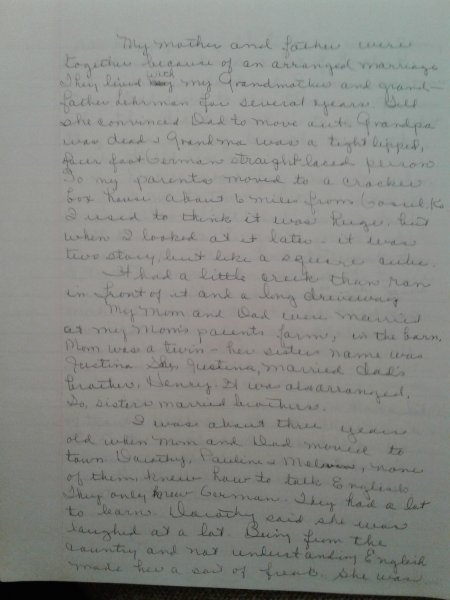 My mother and father were
together because of an arranged marriage
They lived with my Grandmother and grand-
father Lehrman for several years. Till
she convinced Dad to move out. Grandpa
was dead & Grandma was a tight lipped,
four foot German straight laced person
So my parents moved to a cracker
box house about 6 miles from Goessel, Ks
I used to think it was huge, but
when I looked at it later - it was
two story, but like a square cube.
It had a little creek than ran
in front of it and a long driveway
My Mom and Dad were married
at my Mom's parents farm, in the barn,
Mom was a twin - her sisters name was
Justina. Justina, married dad's
brother, Henry. It was also arranged,
So, sisters married brothers.
I was about three years
old when Mom and Dad moved to
town. Dorothy, Pauline & Melvin, none
of them knew how to talk English
They only knew German. They had a lot
to learn. Dorothy said she was
laughed at a lot. Being from the
country and not understanding English
made her a sort of freak. She was